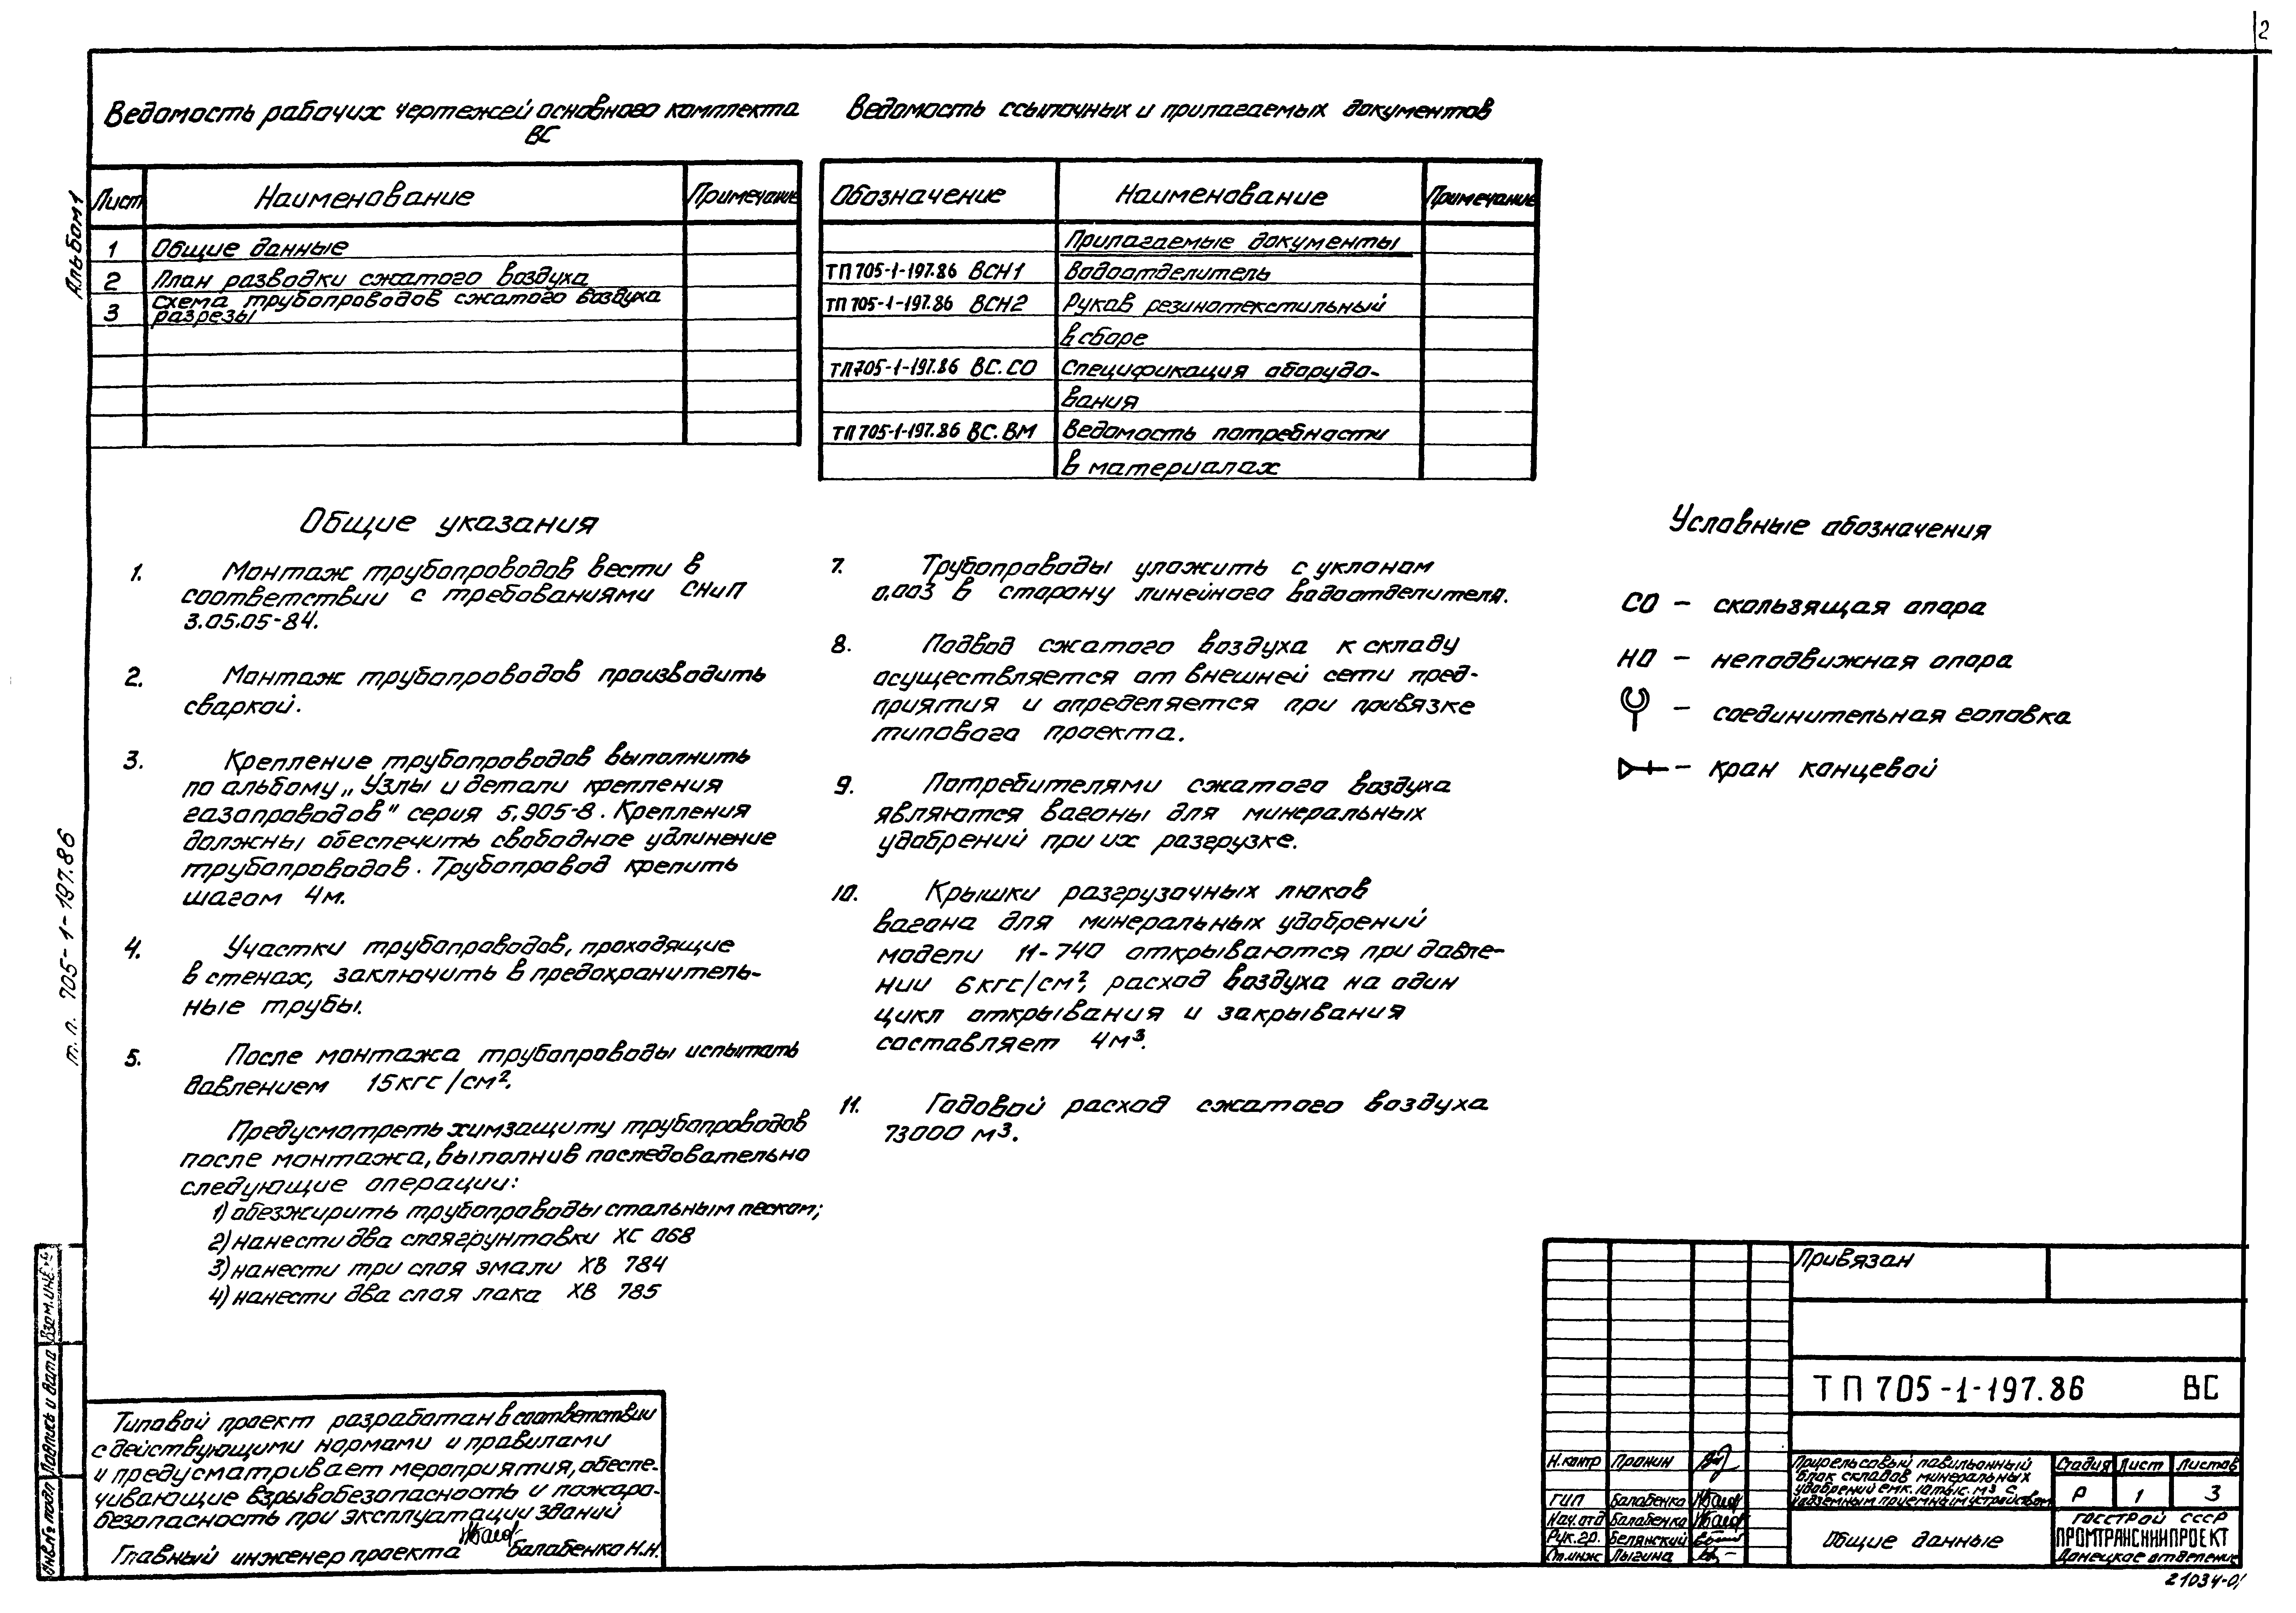 2
Ведомость рабочих чертежей основного комплекта
ВС
Лист Наименование Примечание
1 Общие данные
2 План разводки сжатого воздуха
3 Схема трубопроводов сжатого воздуха
разрезы
Ведомость ссылочных и прилагаемых документов
Обозначение Наименование Примечание
Прилагаемые документы
ТП 705-1-197.86 ВСН1 Водоотделитель
ТП 705-1-197.86 ВСН2 Рукав резинотекстильный
в сборе
ТП 705-1-197.86 ВС.СО Спецификация оборудо-
вания
ТП 705-1-197.86 ВС.ВМ Ведомость потребности
в материалах
Альбом 1
т.п. 705-1-197.86
Общие указания
1. Монтаж трубопроводов вести в
соответствии с требованиями СНиП
3.05.05-84.
2. Монтаж трубопроводов производить
сваркой.
3. Крепление трубопроводов выполнить
по альбому „Узлы и детали крепления
газопроводов" серия 5.905-8. Крепления
должны обеспечить свободное удлинение
трубопроводов. Трубопровод крепить
шагом 4м.
4. Участки трубопроводов, проходящие
в стенах, заключить в предохранитель-
ные трубы.
5. После монтажа трубопроводы испытать
давлением 15кгс/см².
Предусмотреть химзащиту трубопроводов
после монтажа, выполнив последовательно
следующие операции:
1) обезжирить трубопроводы стальным песком;
2) нанести два слоя грунтовки ХС 068
3) нанести три слоя эмали ХВ 784
4) нанести два слоя лака ХВ 785
7. Трубопроводы уложить с уклоном
0,003 в сторону линейного водоотделителя.
8. Подвод сжатого воздуха к складу
осуществляется от внешней сети пред-
приятия и определяется при привязке
типового проекта.
9. Потребителями сжатого воздуха
являются вагоны для минеральных
удобрений при их разгрузке.
10. Крышки разгрузочных люков
вагона для минеральных удобрений
модели 11-740 открываются при давле-
нии 6кгс/см², расход воздуха на один
цикл открывания и закрывания
составляет 4м³.
11. Годовой расход сжатого воздуха
73000 м³.
Условные обозначения
СО – скользящая опора
НО – неподвижная опора
– соединительная головка
– кран концевой
Типовой проект разработан в соответствии
с действующими нормами и правилами
и предусматривает мероприятия, обеспе-
чивающие взрывобезопасность и пожаро-
безопасность при эксплуатации зданий
Главный инженер проекта Балабенко Н.Н.
Инв.№ подл Подпись и дата Взам.инв.№
Привязан
ТП 705-1-197.86 ВС
Н.контр Пронин
ГИП Балабенко
Нач.отд Балабенко
Рук.гр. Белянский
Ст.инж Лыгина
Прирельсовый павильонный
блок складов минеральных
удобрений емк. 10тыс. м³ с
надземным приемным устройством
Стадия Лист Листов
Р 1 3
Общие данные
ГОССТРОЙ СССР
ПРОМТРАНСНИИПРОЕКТ
Донецкое отделение
21034-01